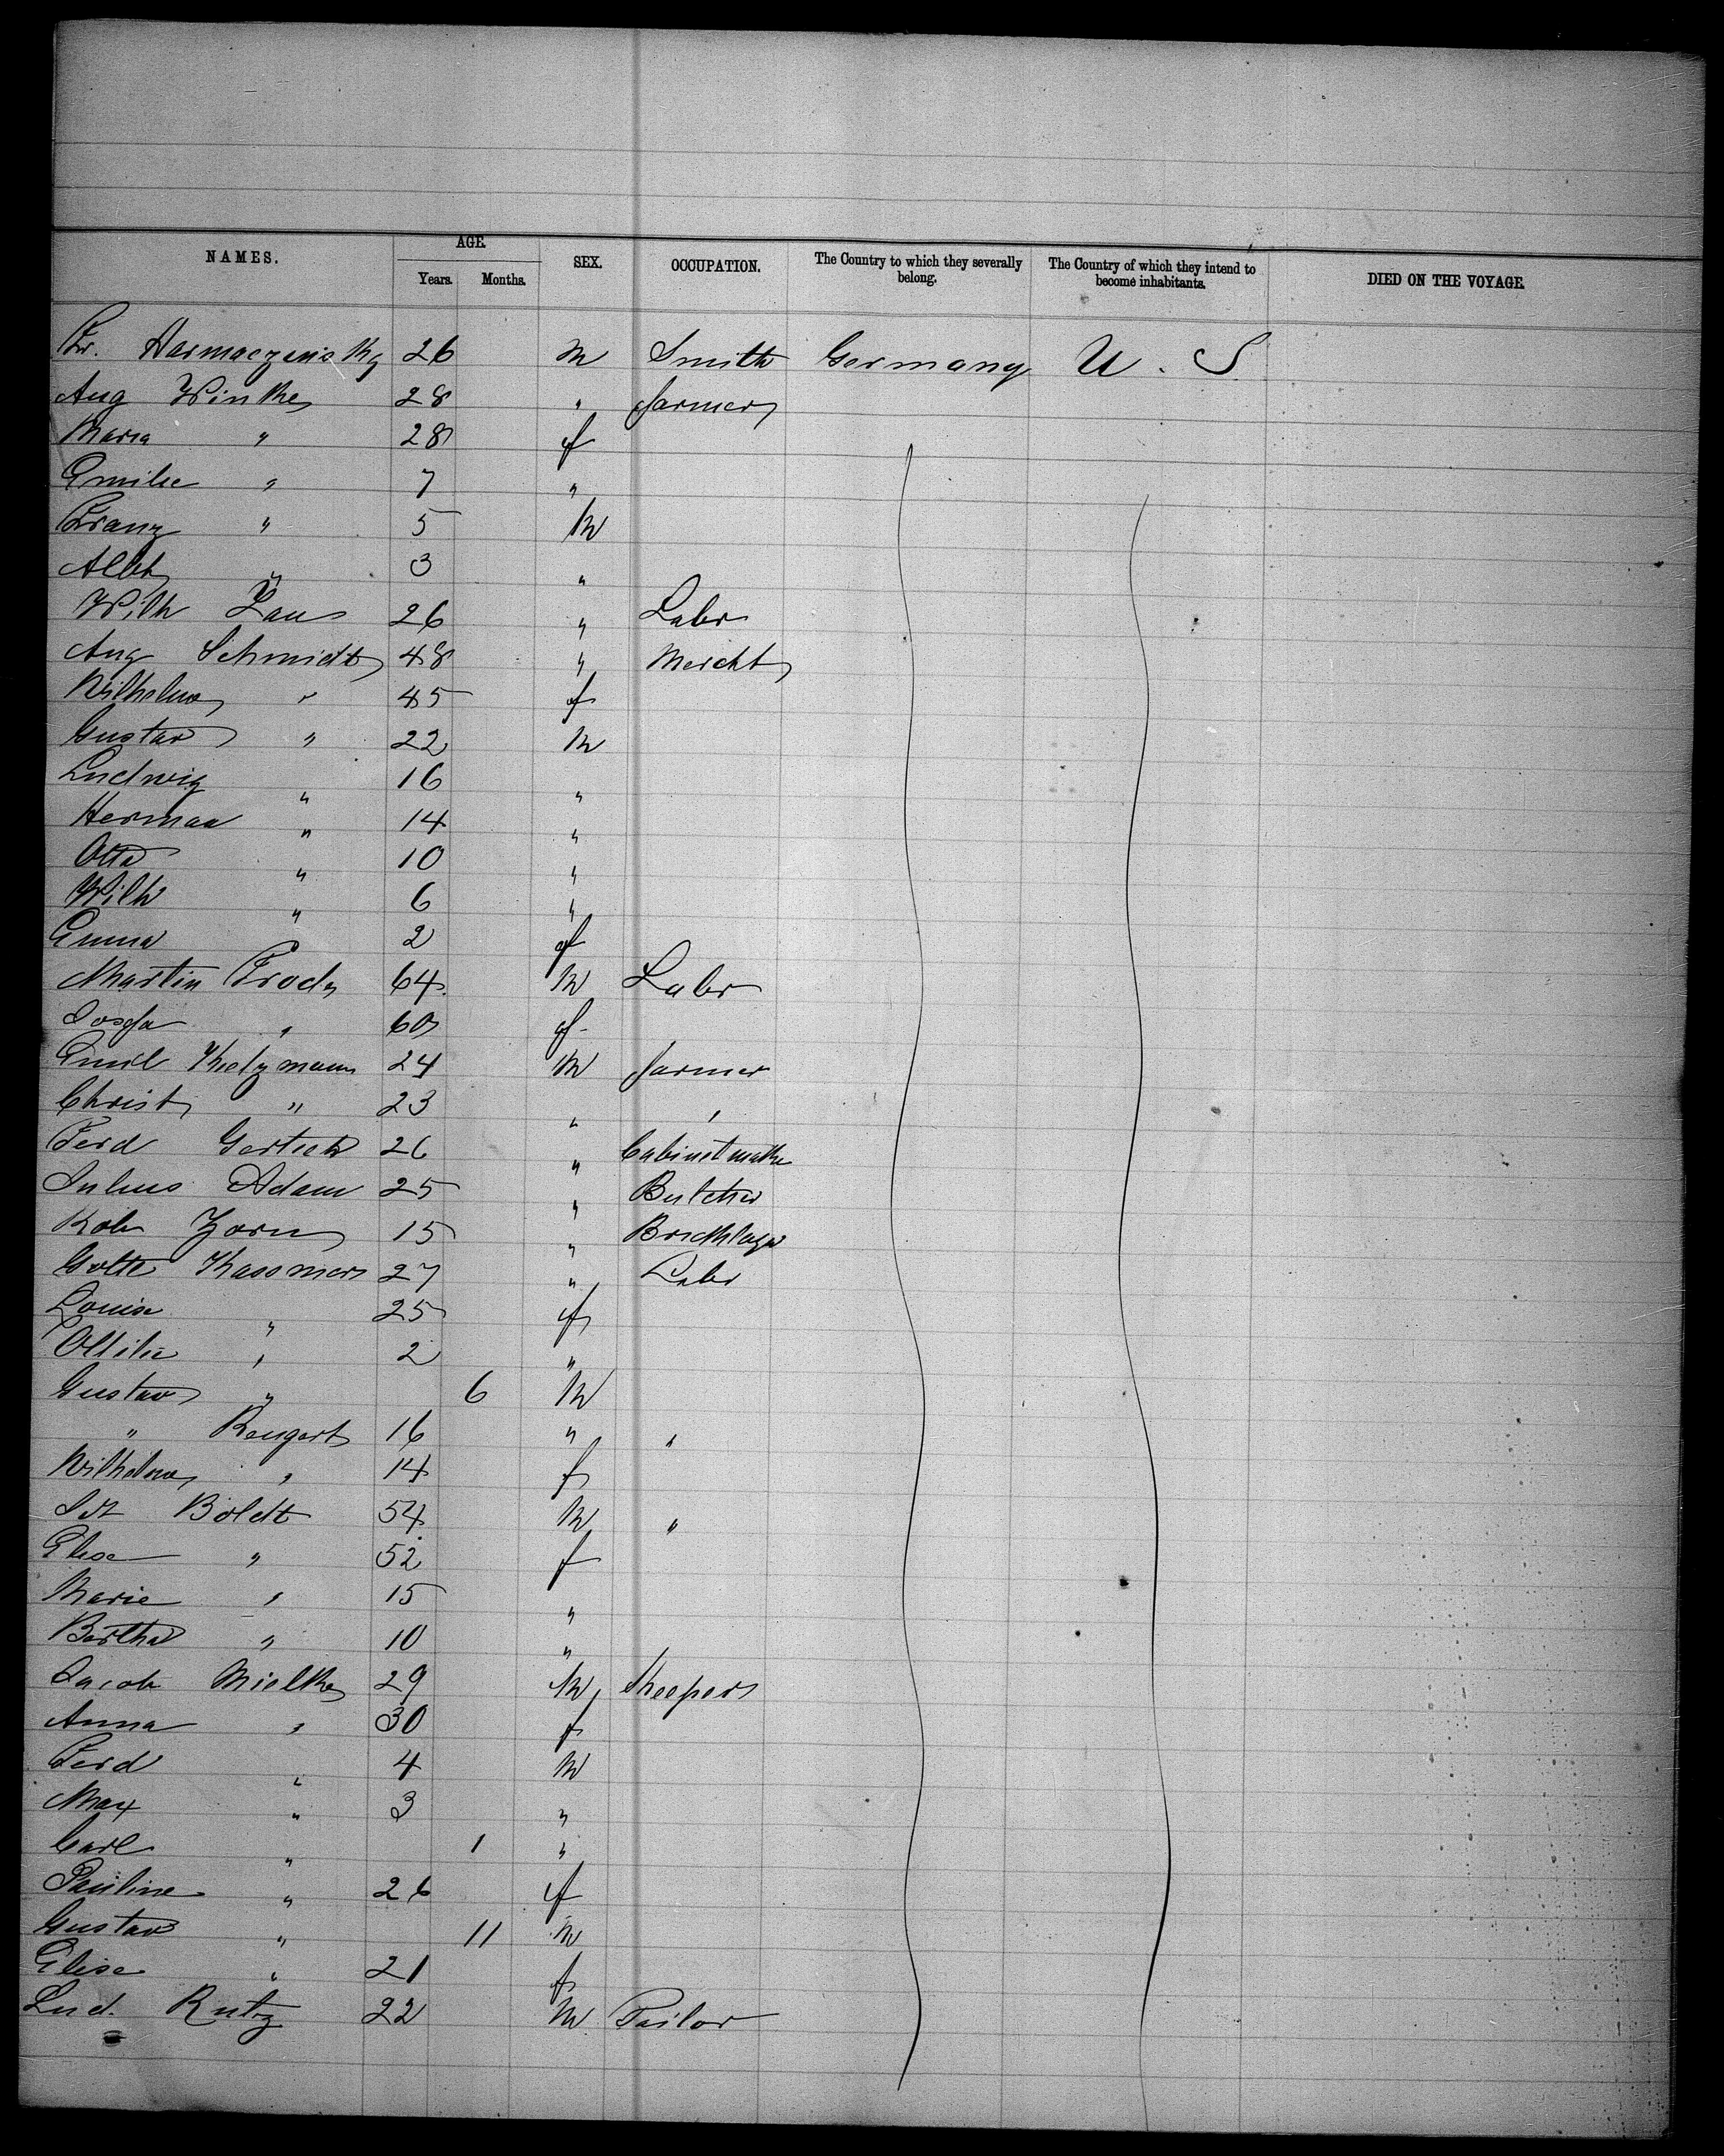 NAMES. AGE. Years. Months. SEX. OCCUPATION. The Country to which they severally belong. The Country of which they intend to become inhabitants. DIED ON THE VOYAGE.
Fr. 26 M Smith Germany U. S.
Aug Winke 28 " farmer
Maria " 28 f
Emilie " 7 "
Franz " 5 M
Albt " 3 "
Wilh Zau 26 " Labr
Aug Schmidt 48 " Mercht
Wilhelme " 45 f
Gustav " 22 M
Ludwig " 16 "
Herman " 14 "
Otto " 10 "
Wilh " 6 "
Emma " 2 f
Martin Frody 64 M Labr
Josefa " 60 f
Emil 24 M farmer
Christ " 23 " "
Ferd Gertich 26 " Cabinetmake
Julius Adam 25 " Butcher
Rob Zorn 15 " Bricklayer
Gottl Kassmer 27 " Labr
Louise " 25 f
Ottilie " 2 "
Gustav " 6 M
" Rengert 16 " "
Wilhelme " 14 f
Boldt 54 M "
Elise " 52 f
Marie " 15 "
Bertha " 10 "
Jacob Mielke 29 M Skeeper
Anna " 30 f
Ferd " 4 M
Max " 3 "
Carl " 1 "
Pauline " 26 f
Gustav " 11 M
Elise " 21 f
Lud. Rutz 22 M Tailor